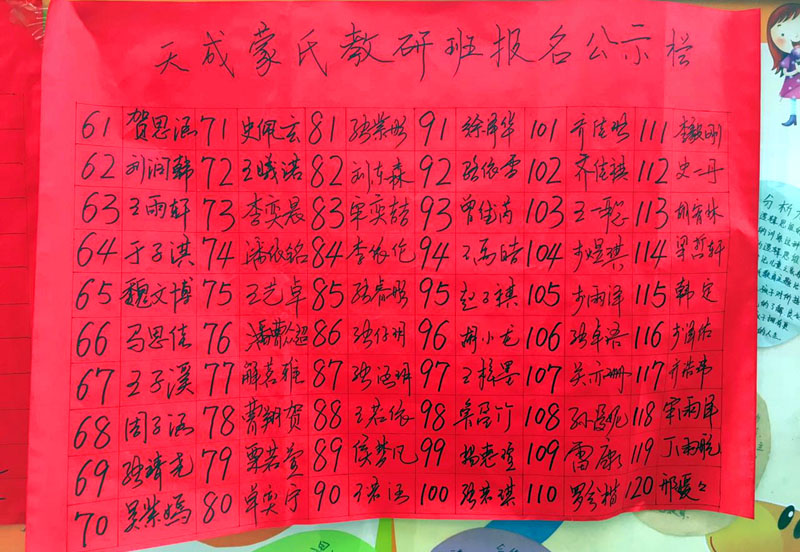 天成蒙氏教研班报名公示栏
61 贺思涵 71 史佩玄 81 张紫彤 91 徐泽华 101 齐佳 111 李毅刚
62 刘润韩 72 王曦诺 82 刘东森 92 路依雪 102 齐佳祺 112 史一丹
63 王雨轩 73 李奕晨 83 牟奕喆 93 曾佳芮 103 王一 113 胡家林
64 于子淇 74 潘依铭 84 李依伦 94 王禹皓 104 步煜琪 114 梁哲轩
65 魏文博 75 王艺卓 85 张睿彤 95 赵子祺 105 步雨泽 115 韩定
66 马思佳 76 潘曹众超 86 张仔玥 96 胡小龙 106 张卓语 116 步泽佑
67 王子溪 77 解茗雅 87 张涵玥 97 王梓墨 107 吴亦珊 117 齐浩
68 周子涵 78 曹翔贺 88 王若依 98 108 孙 118 宋雨泽
69 张靖尧 79 栗若萱 89 侯梦凡 99 杨惠 109 雷康 119 丁雨
70 吴紫嫣 80 单奕宁 90 王若涵 100 张若琪 110 罗 楷 120 邢媛々
分析